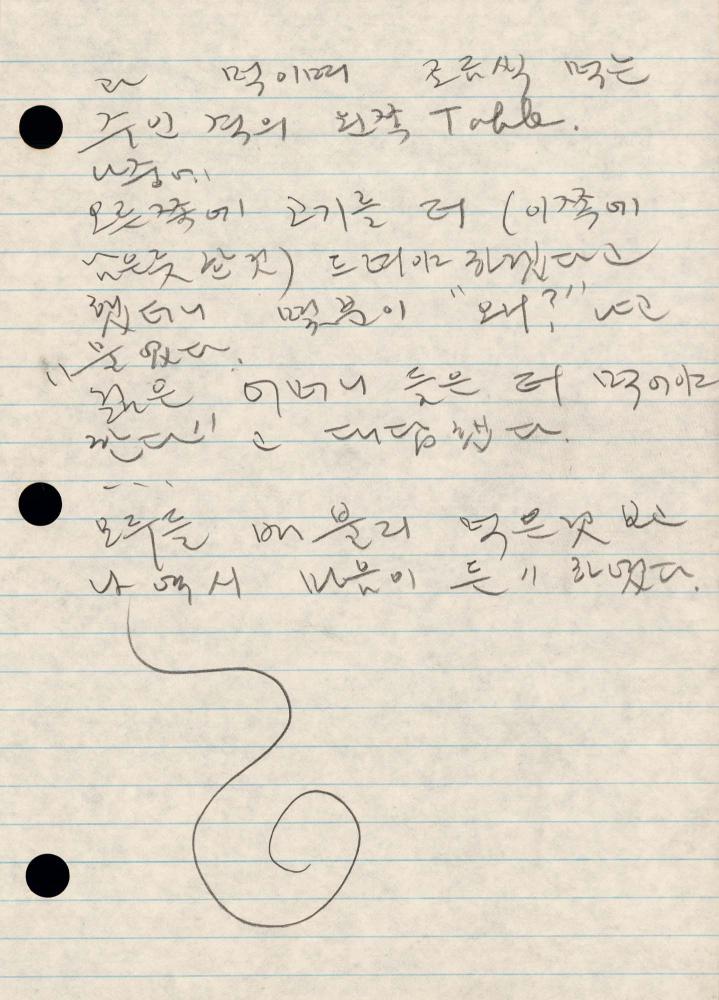 과 먹이며 조금씩 먹는
주인 격의 왼쪽 Table.
나중에
오른쪽에 고기를 더 (이쪽에
남은듯 한 것) 드려야 하겠다고
했더니 몇분이 "왜?" 냐고
물었다.
"젊은 어머니 들은 더 먹어야
한다" 고 대답했다.
- - - -
모두들 배 불리 먹은것 보고
나 역시 마음이 든〃 하였다.